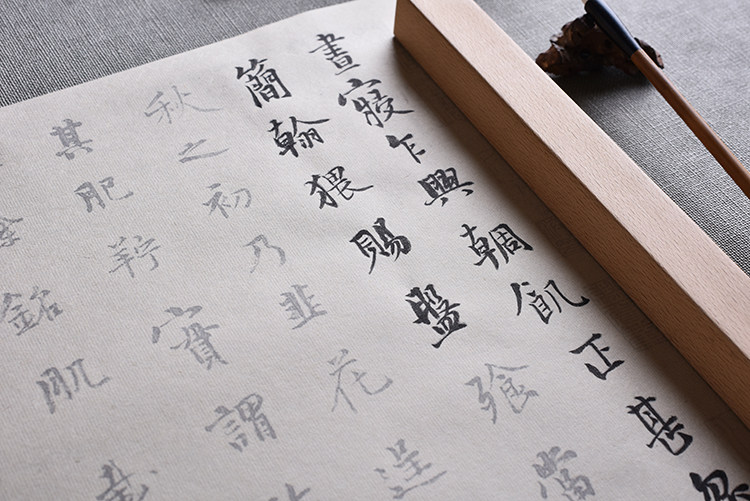 晝寢乍興輖飢正甚
簡翰猥賜盤飧當
秋之初乃韭花逞
其肥羜實謂
銘肌載